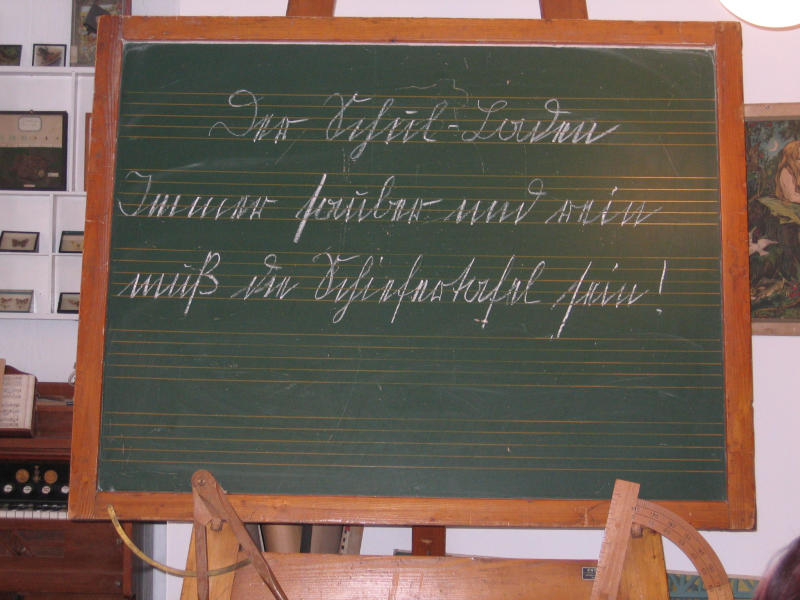 Der Schul-Laden
Immer sauber und rein
muß die Schiefertafel sein!